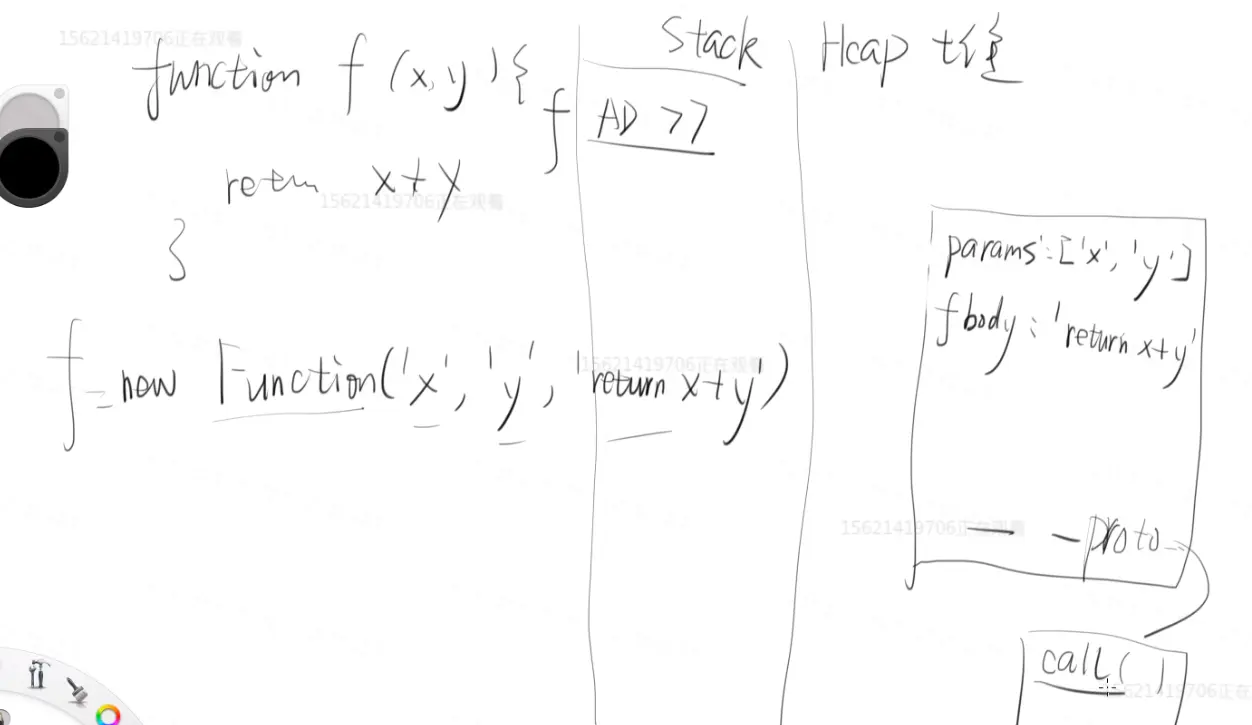 15621419706正在观看
function f (x,y){
retun x+y
15621419706正在观看
}
f = new Function('x', 'y', 'return x+y)
15621419706正在观看
Stack
f AD 77
Heap
params:['x', 'y']
fbody: 'return x+y'
15621419706正在观看
__proto__
call( )
15621419706正在